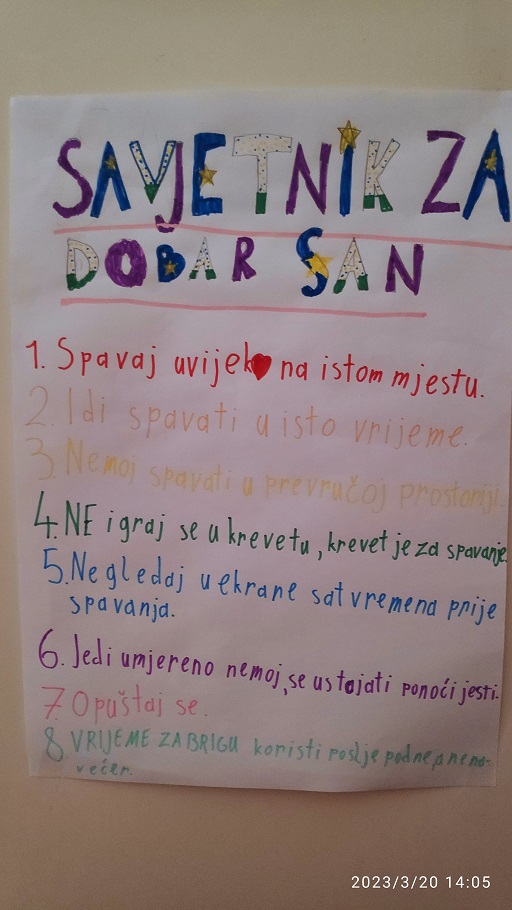 SAVJETNIK ZA
DOBAR SAN
1. Spavaj uvijek na istom mjestu.
2. Idi spavati u isto vrijeme.
3. Nemoj spavati u prevručoj prostoriji.
4. NE igraj se u krevetu, krevet je za spavanje.
5. Ne gledaj u ekrane sat vremena prije
spavanja.
6. Jedi umjereno nemoj, se ustajati ponoći jesti.
7. Opuštaj se.
8 VRIJEME ZA BRIGU koristi poslje podne, a ne na-
večer.
2023/3/20 14:05